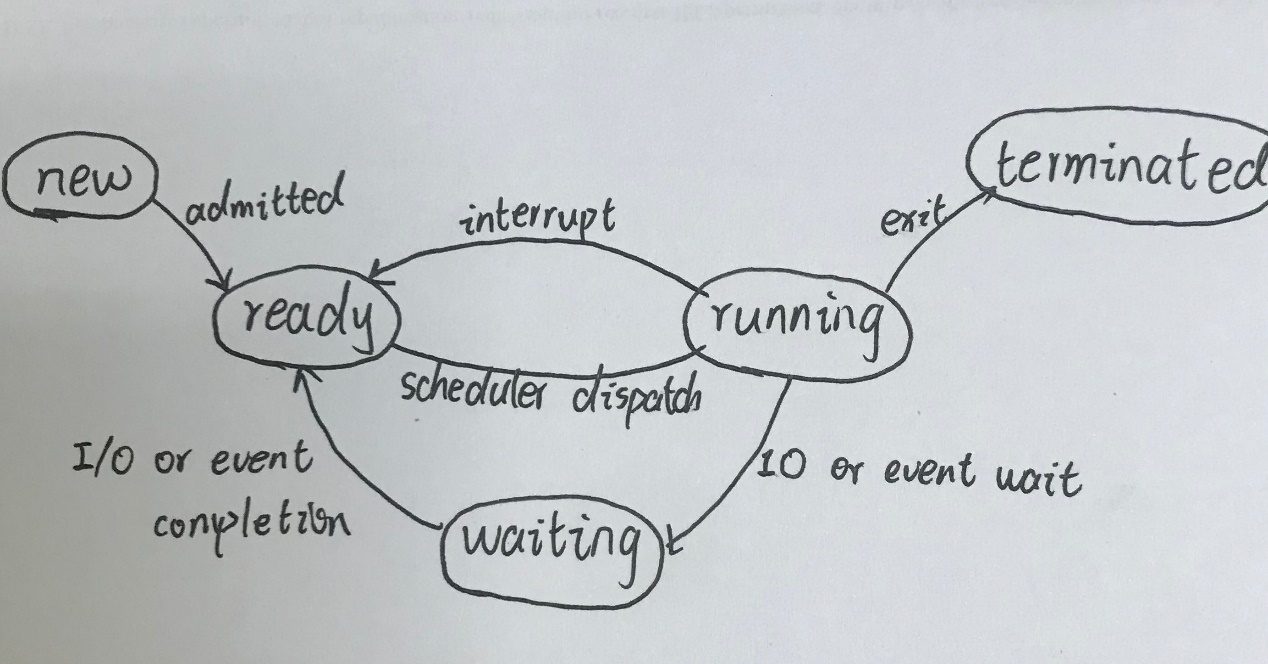 new
admitted
interrupt
exit
terminated
ready
running
scheduler dispatch
I/O or event
completion
IO or event wait
waiting